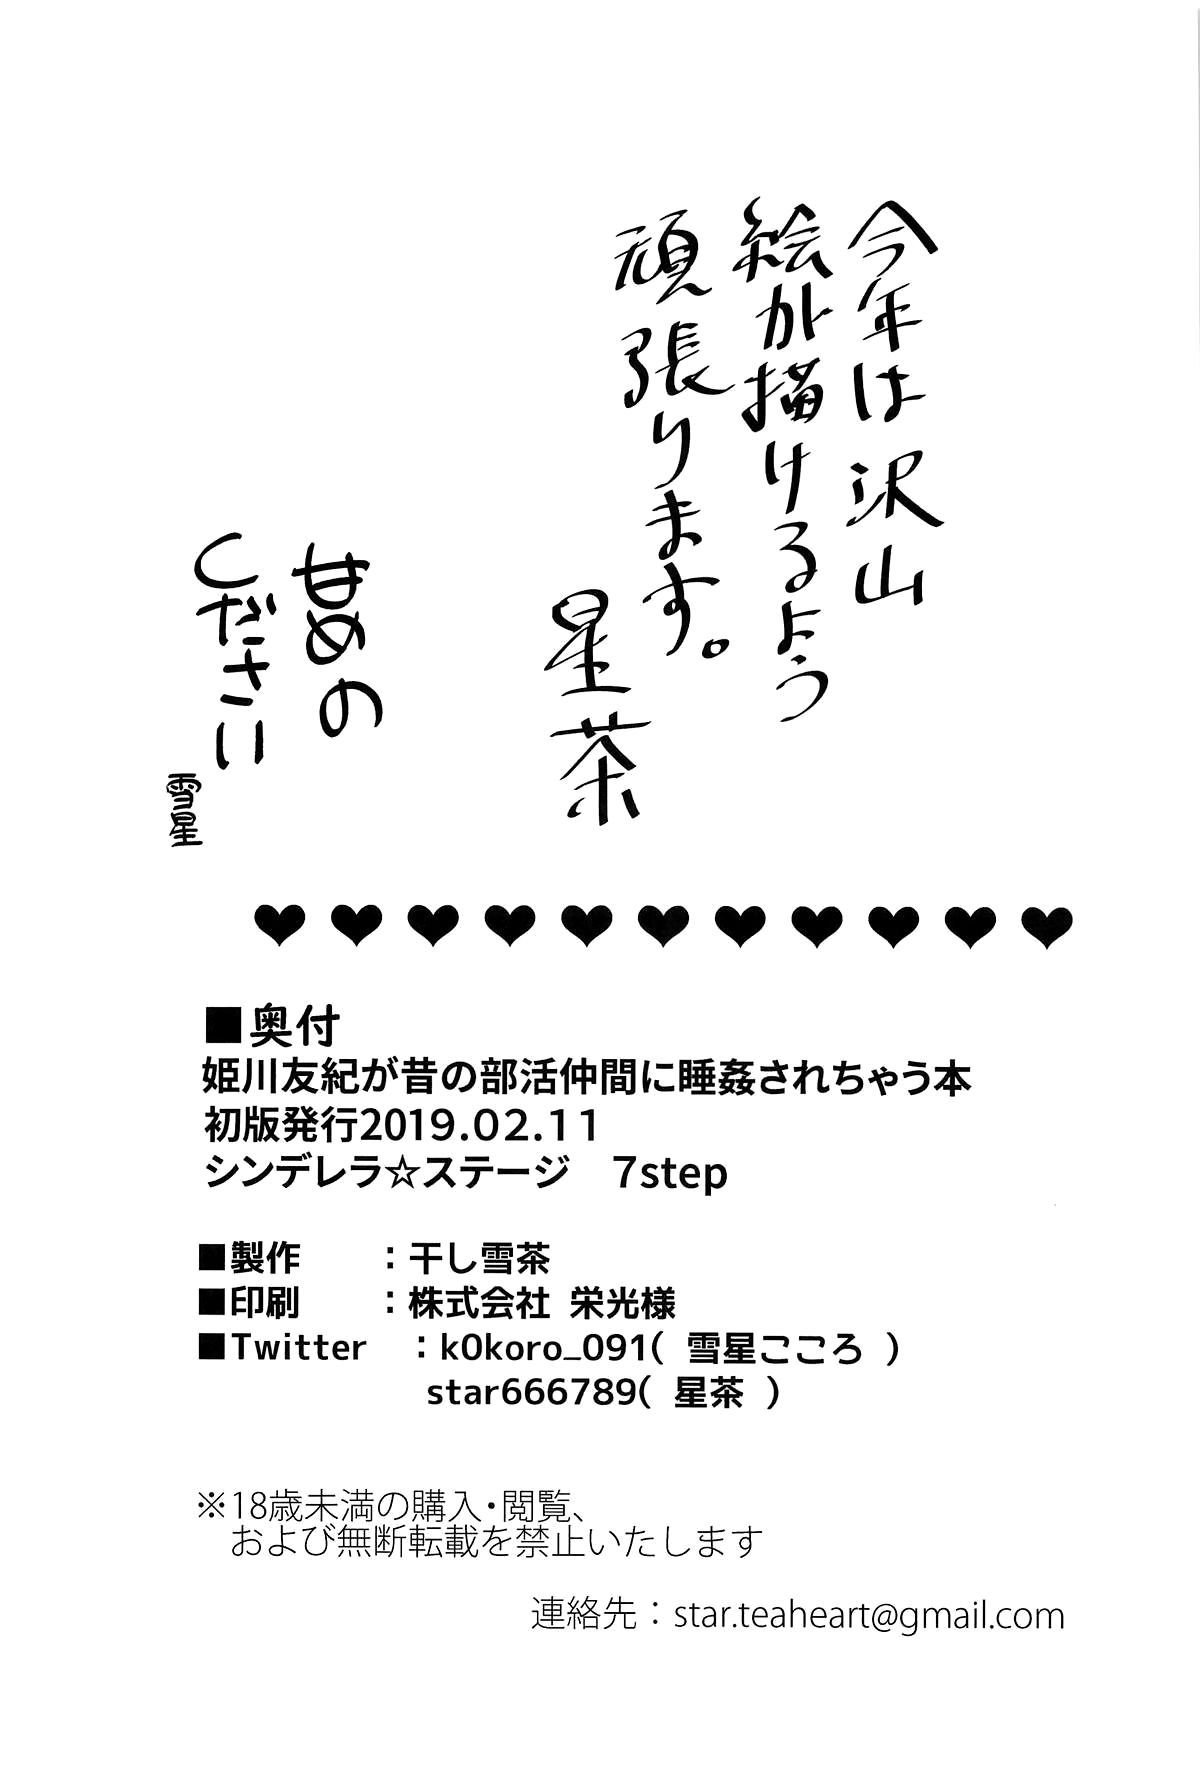 今年は沢山
絵が描けるよう
頑張ります。
星茶
甘めの
ください
雪星
■奥付
姫川友紀が昔の部活仲間に睡姦されちゃう本
初版発行2019.02.11
シンデレラ☆ステージ　7step
■製作　　：干し雪茶
■印刷　　：株式会社 栄光様
■Twitter　：k0koro_091( 雪星こころ )
star666789( 星茶 )
※18歳未満の購入・閲覧、
および無断転載を禁止いたします
連絡先：star.teaheart@gmail.com